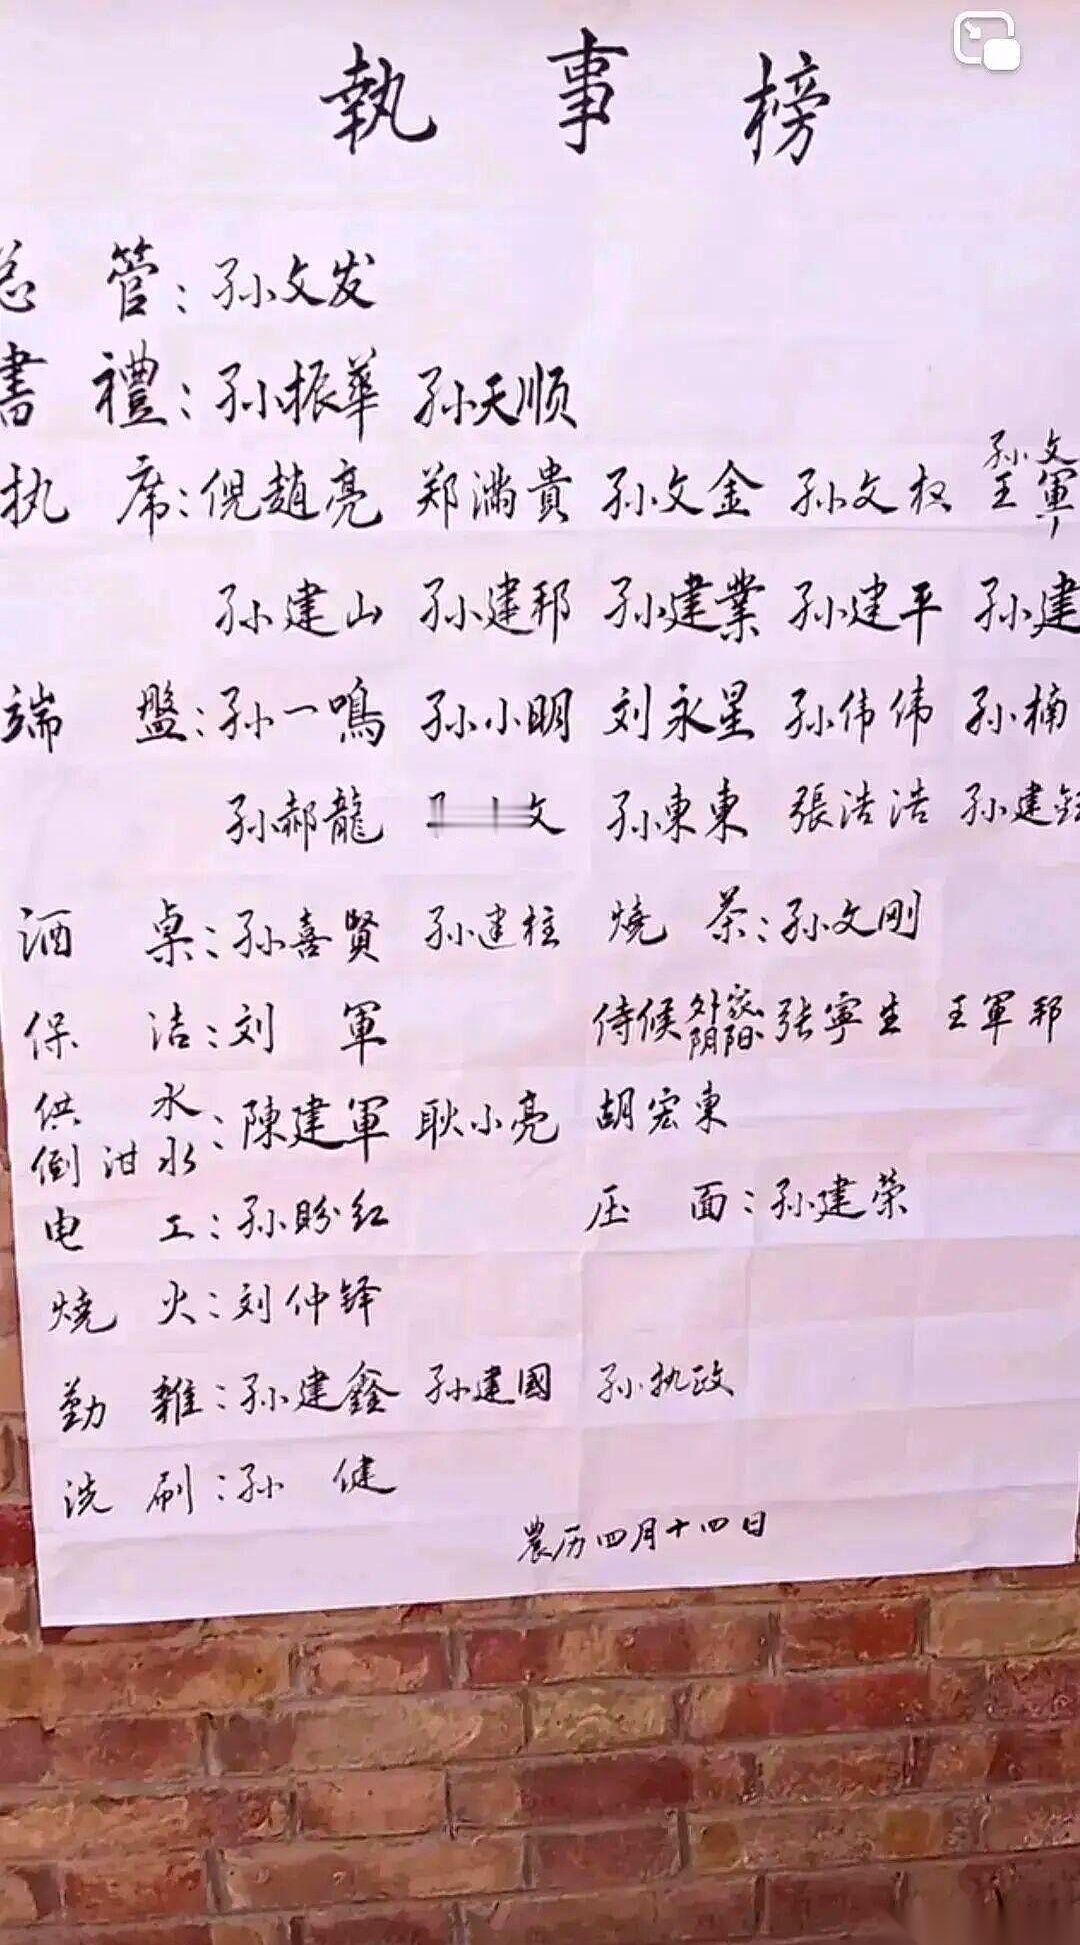 執事榜
总管：孙文发
書禮：孙振華 孙天顺
执席：倪趙亮 郑满貴 孙文金 孙文权 孙文 王軍
孙建山 孙建邦 孙建業 孙建平 孙建
端盤：孙一鳴 孙小明 刘永星 孙伟伟 孙楠
孙郝龍 文 孙東東 張浩浩 孙建
酒桌：孙喜賢 孙建柱 燒茶：孙文刚
保洁：刘軍 侍候外家阴阳：张寧生 王軍邦
供水 倒泔水：陳建軍 耿小亮 胡宏東
电工：孙盼红 压面：孙建荣
燒火：刘仲铎
勤雜：孙建鑫 孙建國 孙执政
洗刷：孙健
農历四月十四日